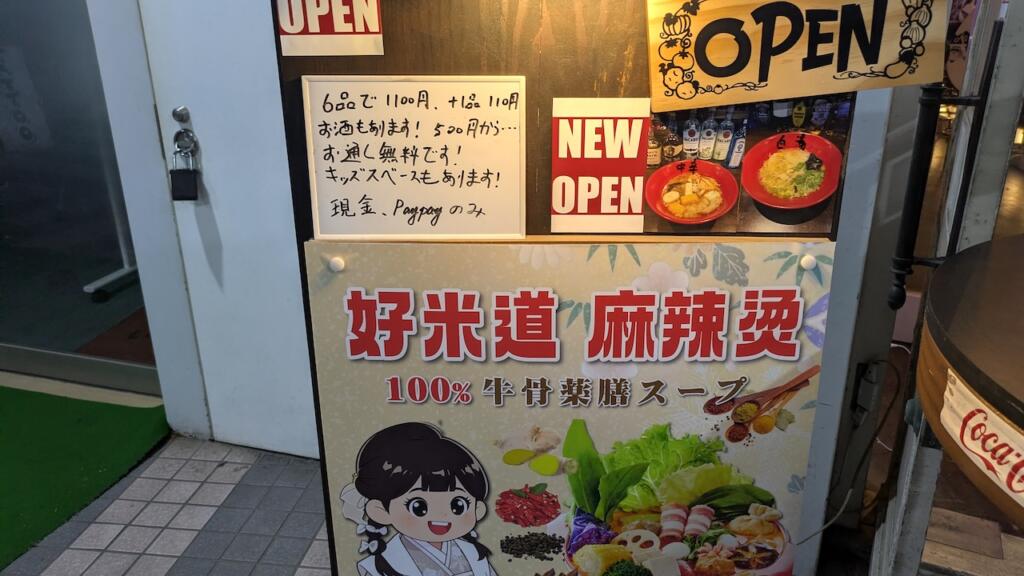 OPEN
OPEN
6品で1100円、+1品110円
お酒もあります! 500円から…
お通し無料です!
キッズスペースもあります!
現金、Paypayのみ
NEW
OPEN
中辛
白湯
好米道 麻辣烫
100% 牛骨薬膳スープ
Coca-Cola